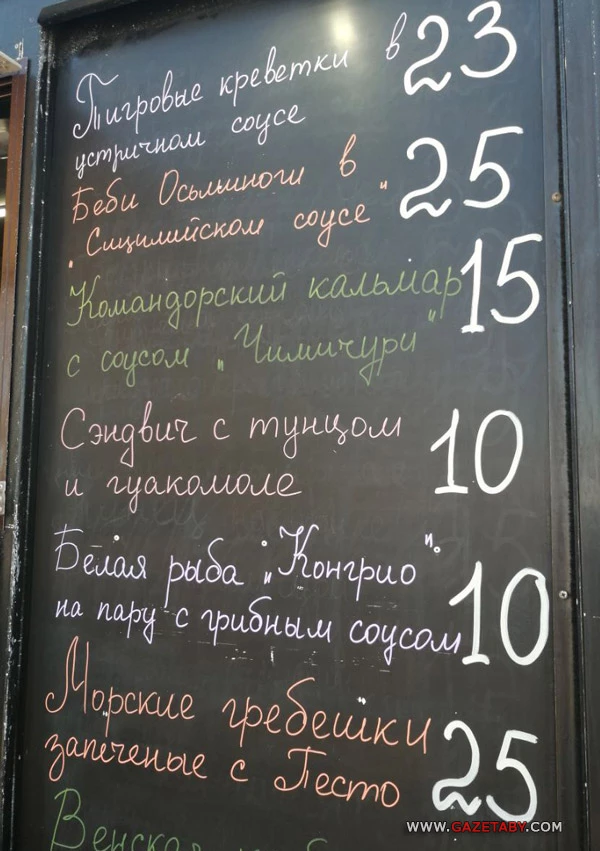 Тигровые креветки в 23
устричном соусе
Беби Осьминоги в 25
"Сицилийском соусе"
Командорский кальмар 15
с соусом "Чимичури"
Сэндвич с тунцом 10
и гуакомоле
Белая рыба "Конгрио"
на пару с грибным соусом 10
Морские гребешки
запеченые с Песто 25
Венская
WWW.GAZETABY.COM